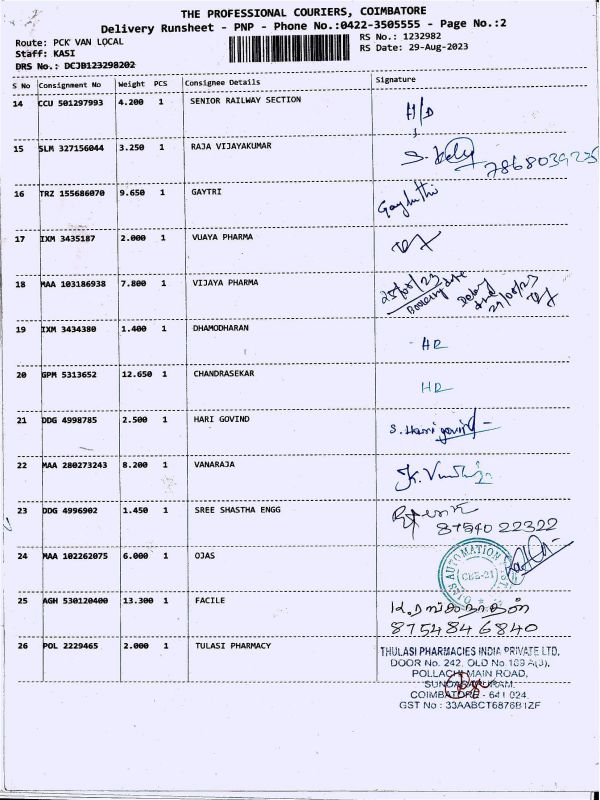 THE PROFESSIONAL COURIERS, COIMBATORE
Delivery Runsheet - PNP - Phone No.:0422-3505555 - Page No.:2
Route: PCK VAN LOCAL
RS No.: 1232982
Staff: KASI
RS Date: 29-Aug-2023
DRS No.: DCJB123298202
S No Consignment No Weight PCS Consignee Details Signature
14 CCU 501297993 4.200 1 SENIOR RAILWAY SECTION H/D
15 SLM 327156044 3.250 1 RAJA VIJAYAKUMAR
16 TRZ 155686070 9.650 1 GAYTRI
17 IXM 3435187 2.000 1 VIJAYA PHARMA
18 MAA 103186938 7.800 1 VIJAYA PHARMA 25/08/23
19 IXM 3434380 1.400 1 DHAMODHARAN
20 GPM 5313652 12.650 1 CHANDRASEKAR
21 DDG 4998785 2.500 1 HARI GOVIND
22 MAA 280273243 8.200 1 VANARAJA
23 DDG 4996902 1.450 1 SREE SHASTHA ENGG
87540 22322
24 MAA 102262075 6.000 1 OJAS
CBE-21
25 AGH 530120400 13.300 1 FACILE
8754846840
26 POL 2229465 2.000 1 TULASI PHARMACY
THULASI PHARMACIES INDIA PRIVATE LTD.
DOOR No. 242, OLD No.
POLLACHI MAIN ROAD,
SUNDARAPURAM,
COIMBATORE - 641 024.
GST No : 33AABCT6876B1ZF